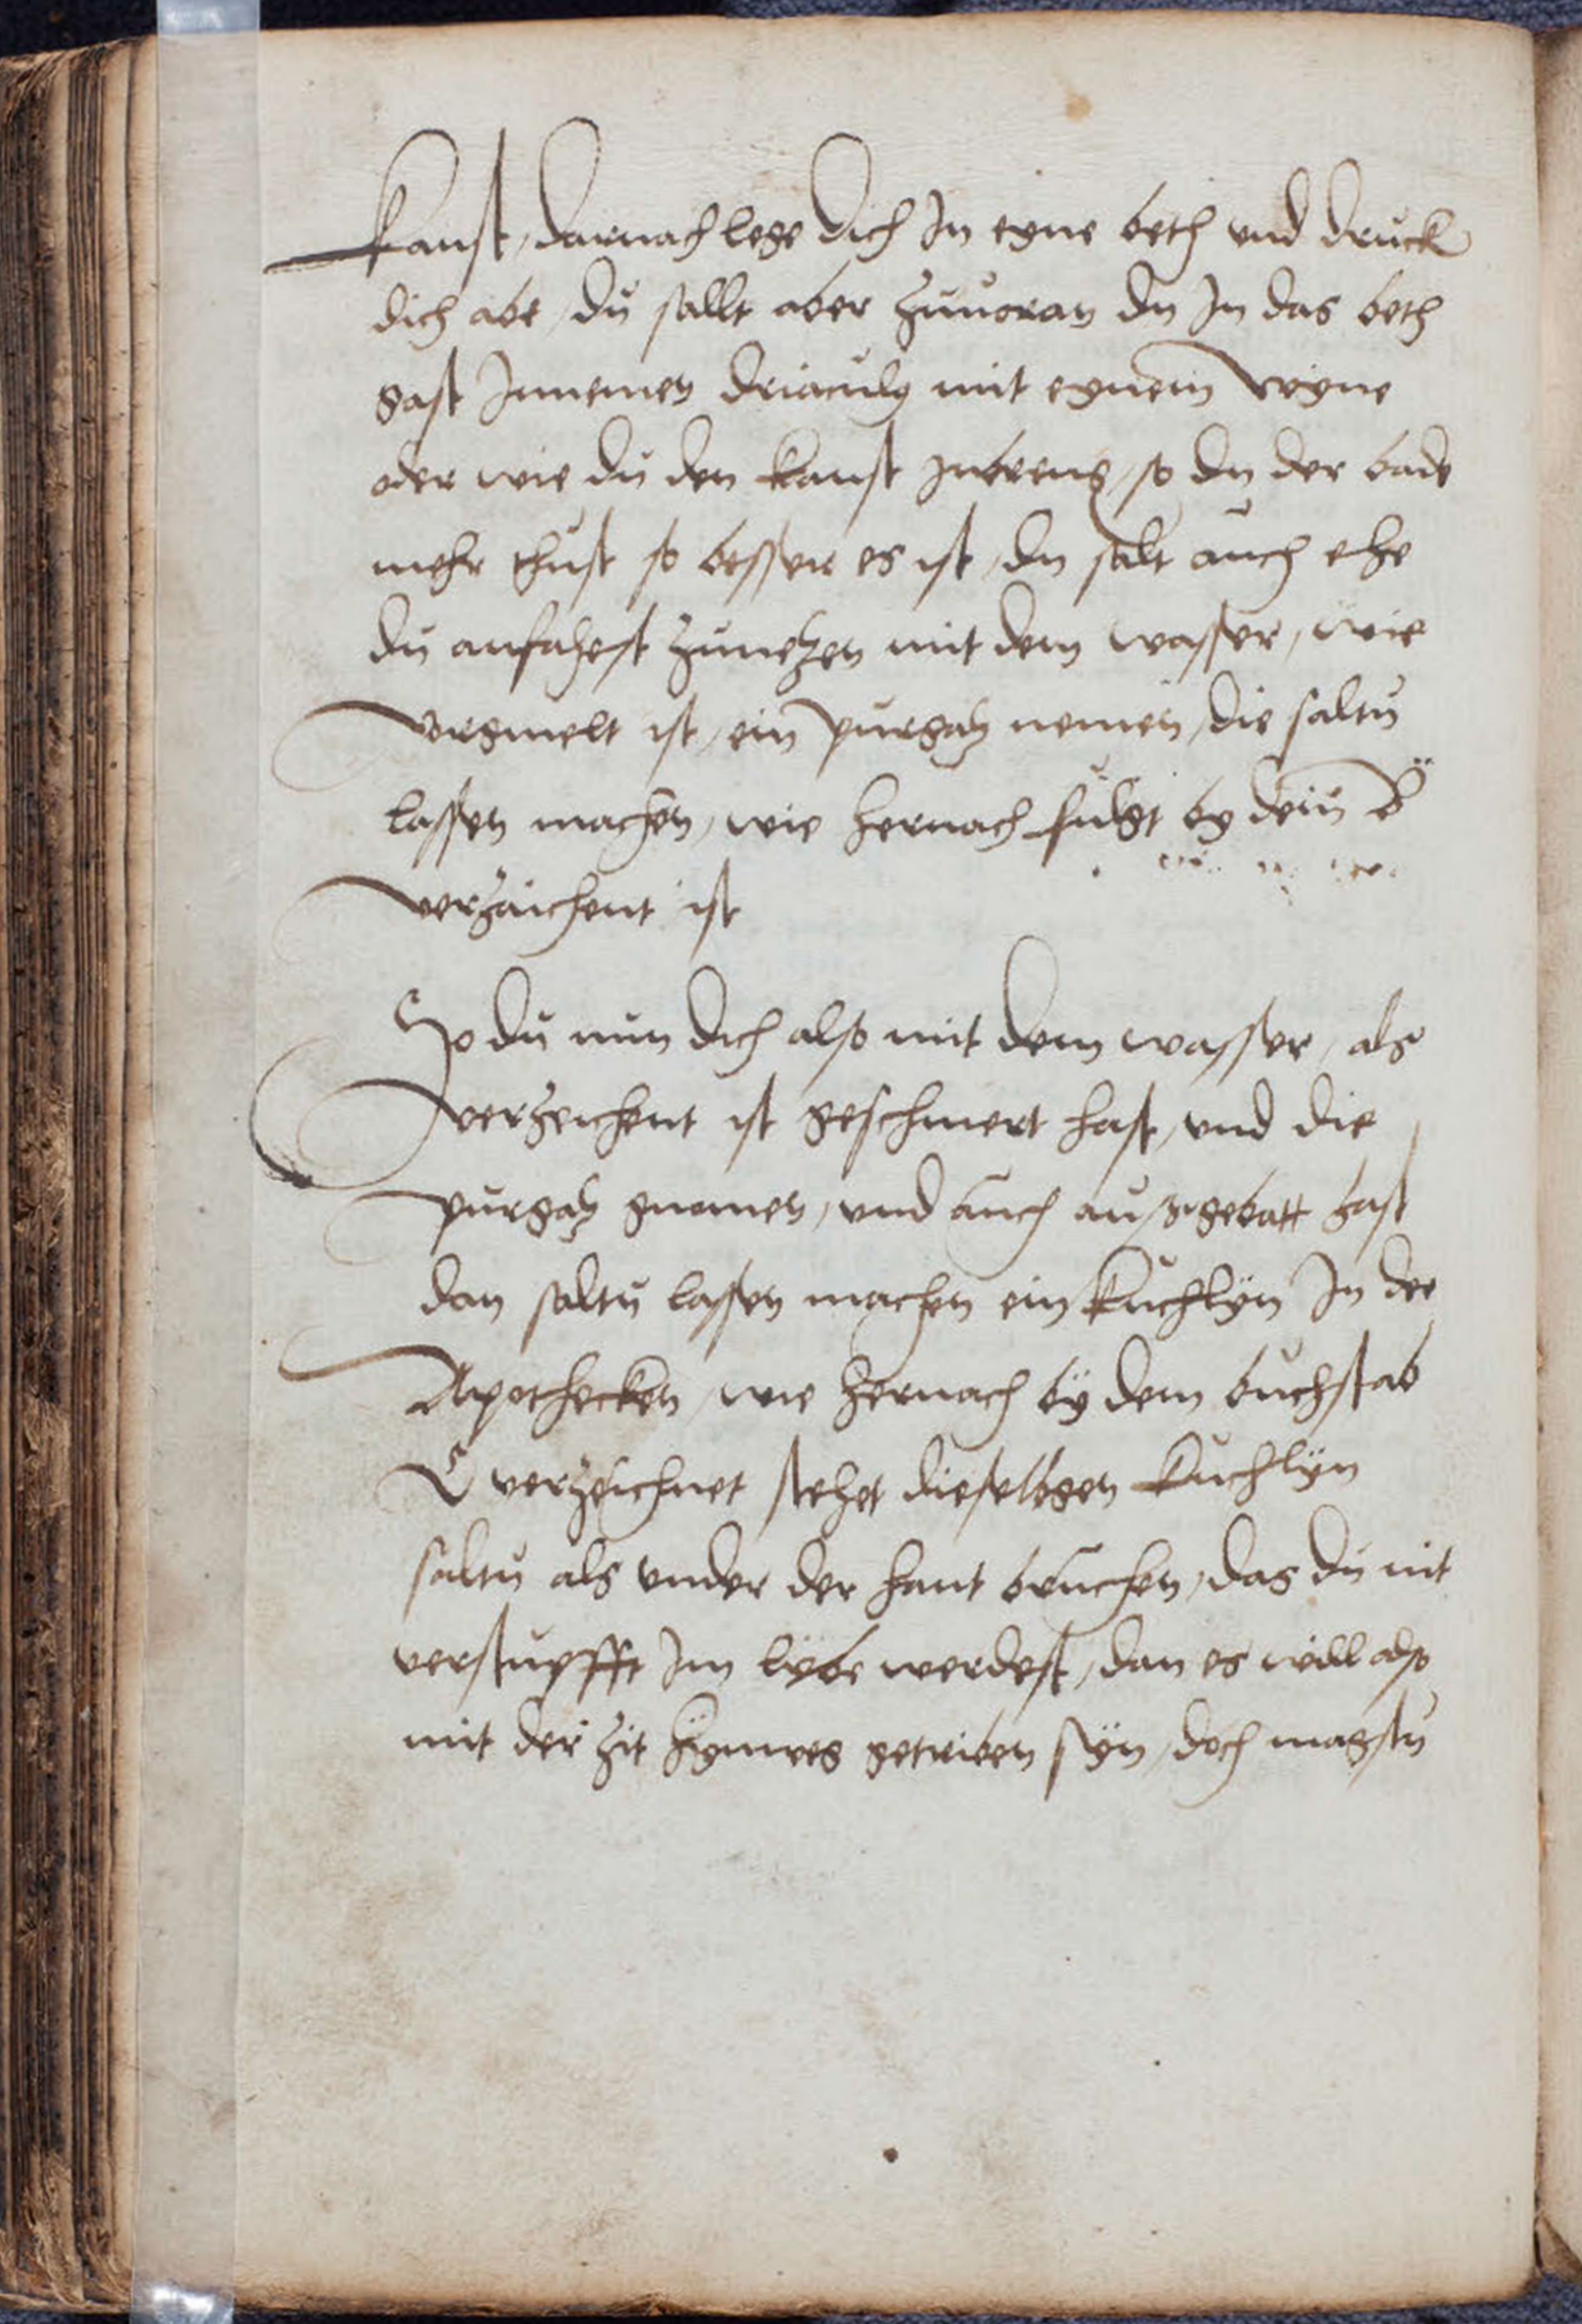 kanst, darnach lege dich In eyne beth und druck
dich abe, du sallt aber zuuoran du In das beth
gast Innemen driaculy mit eynem wyne
oder wie du den kanst zubreng, so du der bade
mehr thust so besser es ist, du salt auch ehe
du anfahest zunetzen mit dem wasser, wie
vorgmelt ist, ein purgatz nemen, die saltu
lassen machen, wie hernach fulgt by dem B
verzaichent ist
So du nun dich also mit dem wasser, als
verzeichent ist geschmert hast, und die
purgatz gnomen, und auch außgebatt hast
dan saltu lassen machen ein kuchlÿn In der
Apothecken, wie hernach bÿ dem buchstab
C verzeichnet stehet dieselbgen kuchlÿn
saltu als under der hant bruchen, das du nit
verstupfft Im lybe werdest, dan es will also
mit der zit hynweg getriben sÿn, doch magstu